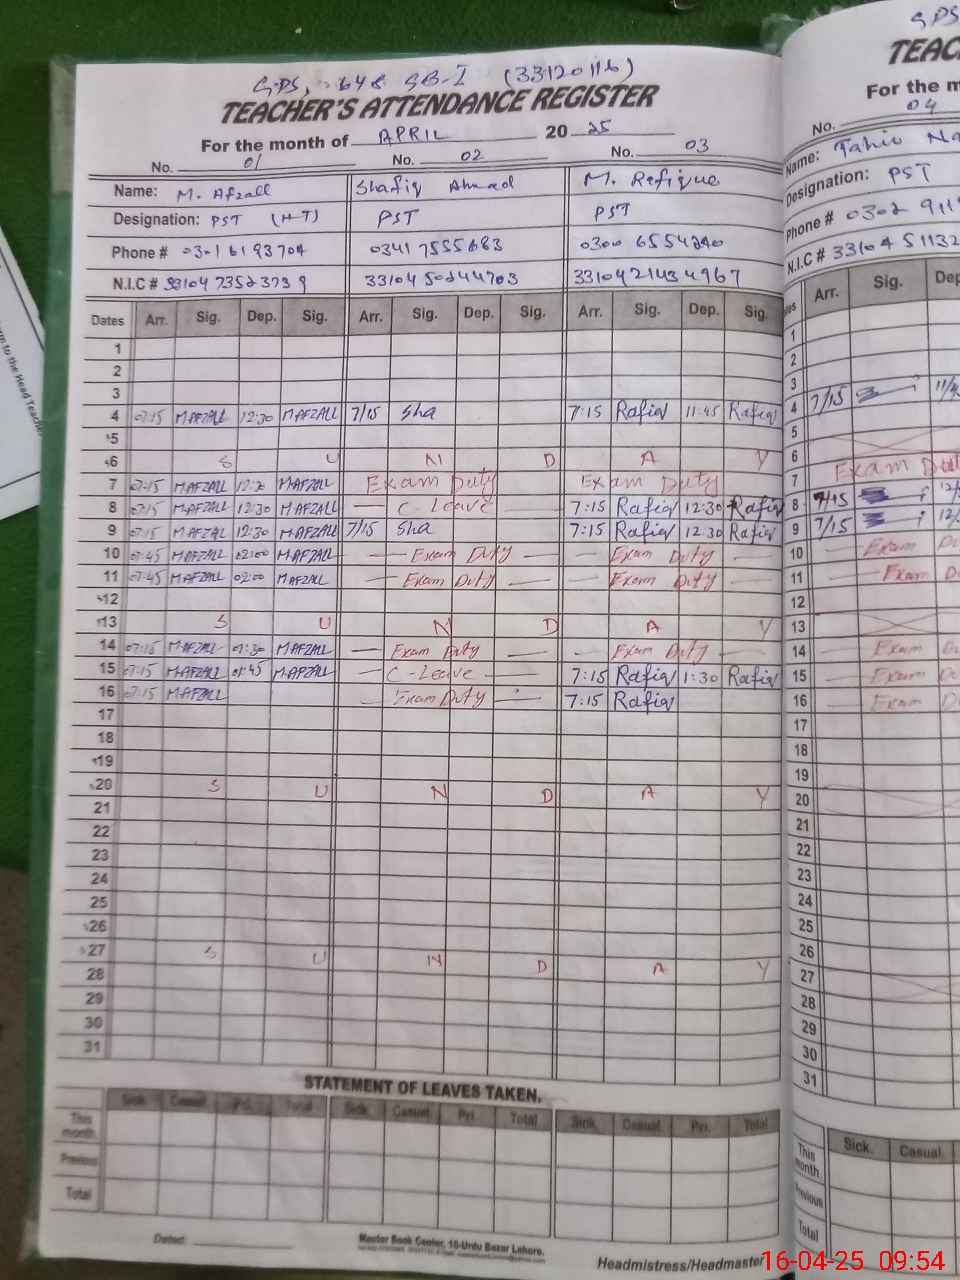 GPS, 648 GB-I (33120116)
TEACHER'S ATTENDANCE REGISTER
For the month of APRIL 20 25
No. 01 No. 02 No. 03
Name: M. Afzall Shafiq Ahmad M. Rafique
Designation: PST (H-T) PST PST
Phone # 0301 6193704 0341 7555683 0300 6554240
N.I.C # 33104 7352373 9 33104 50244703 3310421434967
Dates Arr. Sig. Dep. Sig. Arr. Sig. Dep. Sig. Arr. Sig. Dep. Sig.
1
2
3
4 07:15 MAFZALL 12:30 MAFZALL 7/15 Sha 7:15 Rafiq 11:45 Rafiq
5
6 S U N D A Y
7 07:15 MAFZALL 12:30 MAFZALL Exam Duty Exam Duty
8 07:15 MAFZALL 12:30 MAFZALL — C-Leave — 7:15 Rafiq 12:30 Rafiq
9 07:15 MAFZALL 12:30 MAFZALL 7/15 Sha 7:15 Rafiq 12.30 Rafiq
10 07:45 MAFZALL 02:00 MAFZALL — Exam Duty — — Exam Duty —
11 07:45 MAFZALL 02:00 MAFZALL — Exam Duty — — Exam Duty —
12
13 S U N D A Y
14 07:15 MAFZALL 01:30 MAFZALL — Exam Duty — — Exam Duty —
15 07:15 MAFZALL 01:45 MAFZALL — C-Leave — 7:15 Rafiq 1:30 Rafiq
16 07:15 MAFZALL Exam Duty — 7:15 Rafiq
17
18
19
20 S U N D A Y
21
22
23
24
25
26
27 S U N D A Y
28
29
30
31
STATEMENT OF LEAVES TAKEN.
Sick. Casual. Pri. Total Sick. Casual. Pri. Total Sick. Casual. Pri. Total
This month.
Previous
Total
Dated:
Master Book Center, 10-Urdu Bazar Lahore.
Headmistress/Headmaster
GPS
TEAC
For the m
No. 04
Name: Tahir Na
Designation: PST
Phone # 0302 911
N.I.C # 33104 51132
Arr. Sig. Dep
1
2
3
4 7/15 11/4
5
6
7 Exam Dut
8 7/15 12/
9 7/15 12/
10 — Exam D
11 — Exam D
12
13
14 — Exam D
15 — Exam D
16 — Exam D
17
18
19
20
21
22
23
24
25
26
27
28
29
30
31
Sick. Casual.
This month.
Previous
Total
orm to the Head Teacher
16-04-25 09:54